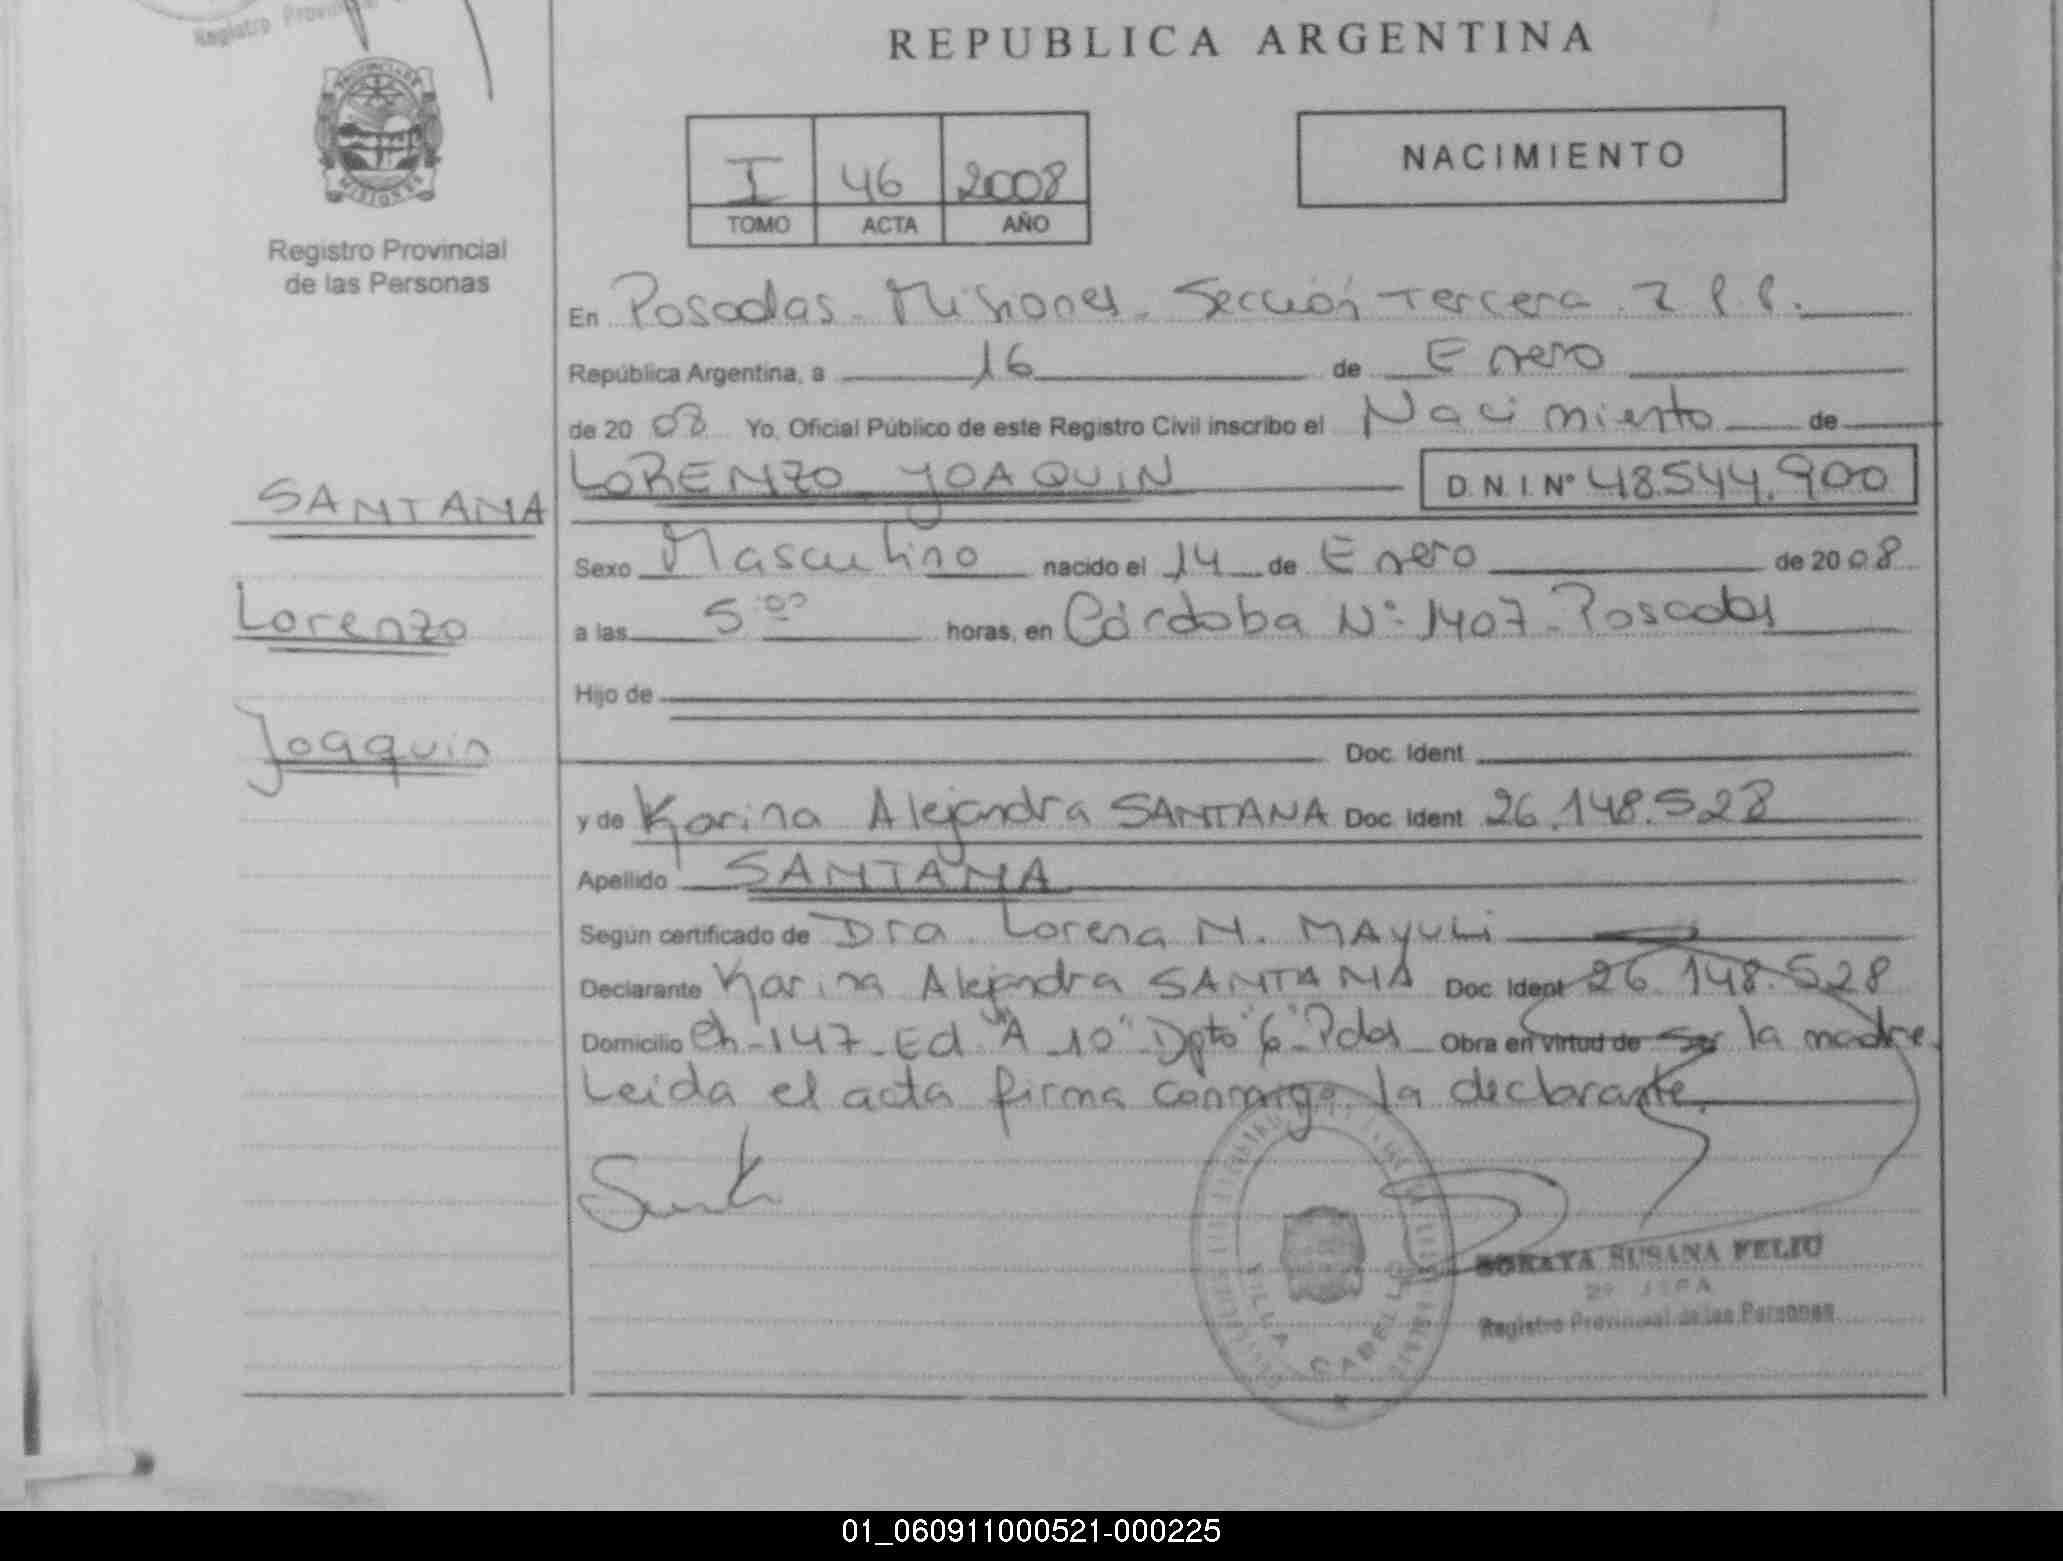 Registro Provincial
REPUBLICA ARGENTINA
PROVINCIA DE
MISIONES
Registro Provincial
de las Personas
I 46 2008
TOMO ACTA AÑO
NACIMIENTO
En Posadas - Misiones - Sección Tercera
República Argentina, a 16 de Enero
de 2008 Yo, Oficial Público de este Registro Civil inscribo el Nacimiento de
LORENZO JOAQUIN D.N.I. Nº 48.544.900
SANTANA
Sexo Masculino nacido el 14 de Enero de 2008
Lorenzo
a las 5:00 horas, en Córdoba Nº 1407 - Posadas
Hijo de
Joaquin
Doc. Ident.
y de Karina Alejandra SANTANA Doc. Ident. 26.148.528
Apellido SANTANA
Según certificado de Dra. Lorena M. MAYULI
Declarante Karina Alejandra SANTANA Doc. Ident. 26.148.528
Domicilio Ch-147-Ed "A 10" Dpto "6" Pdas Obra en virtud de Ser la madre.
Leida el acta firma conmigo la declarante.
VILLA CABELLO
SORAYA SUSANA FELIU
2º JEFA
Registro Provincial de las Personas
01_060911000521-000225